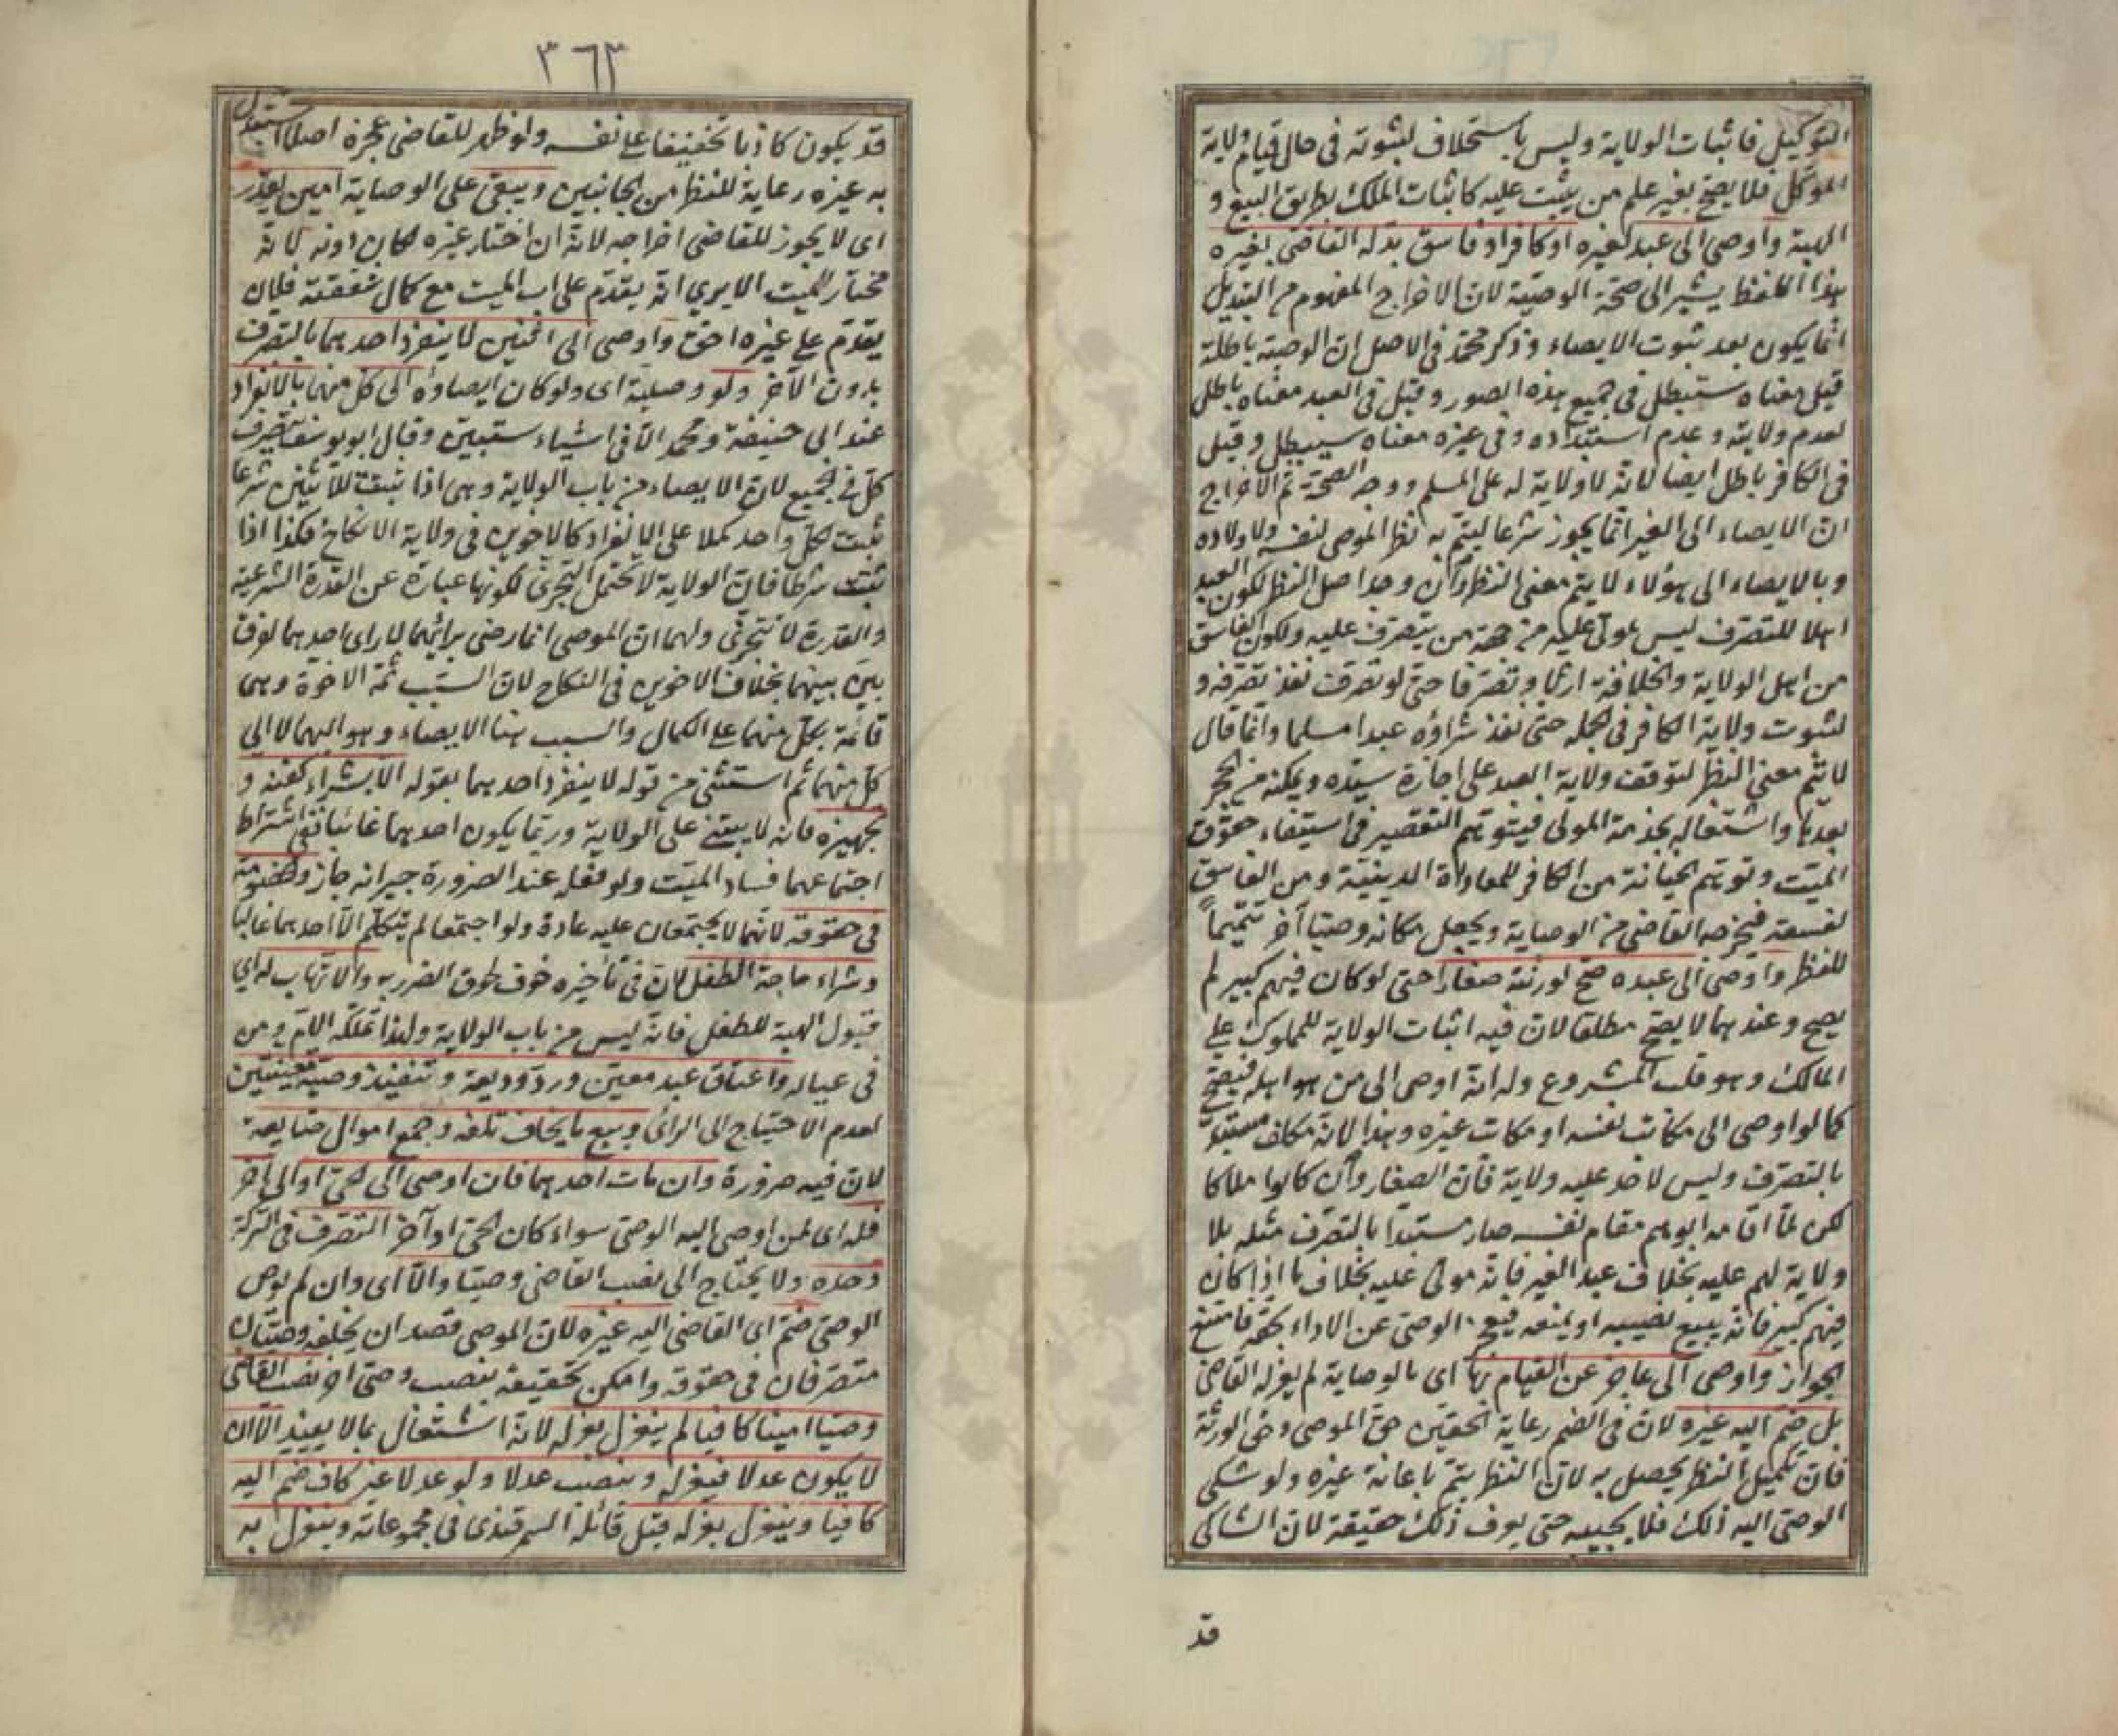 التوكيل فاثبات الولاية وليس باستخلاف لثبوته فى حال قيام ولاية
الموكل فلا يصح بغير علم من يثبت عليه كاثبات الملك بطريق البيع و
الهبة واوصى الى عبد لغيره او كافر او فاسق بدله القاضى بغيره
هذا اللفظ يشير الى صحة الوصية لان الاخراج المفهوم من التبديل
انما يكون بعد ثبوت الايصاء وذكر محمد فى الاصل ان الوصية باطلة
قيل معناه ستبطل فى جميع هذه الصور وقيل فى العبد معناه باطل
لعدم ولايته وعدم استبداده وفى غيره معناه سيبطل وقيل
فى الكافر باطل ايضا لانه لا ولاية له على المسلم ووجه الصحة ثم الاخراج
ان الايصاء الى الغير انما يجوز شرعا ليتم به نظر الموصى لنفسه ولاولاده
وبالايصاء الى هؤلاء لا يتم معنى النظر وان وجد اصل النظر لكون العبد
اهلا للتصرف ليس مولى عليه من جهة من يتصرف عليه ولكون الفاسق
من اهل الولاية والخلافة ارثا وتصرفا حتى لو تصرف نفذ تصرفه و
لثبوت ولاية الكافر فى الجملة حتى نفذ شراؤه عبدا مسلما وانما قال
لا يتم معنى النظر لتوقف ولاية العبد على اجازة سيده ويمكنه من الحجر
بعدها واشتغاله بخدمة المولى فيتوهم التقصير فى استيفاء حقوق
الميت وتوهم الخيانة من الكافر للمعاداة الدينية ومن الفاسق
لفسقه فيخرجه القاضى من الوصاية ويجعل مكانه وصيا آخر تتميما
للنظر واوصى الى عبده صح لو ورثته صغارا حتى لو كان فيهم كبير لم
يصح وعندهما لا يصح مطلقا لان فيه اثبات الولاية للمملوك على
المالك وهو قلب المشروع وله انه اوصى الى من هو اهله فيصح
كما لو اوصى الى مكاتب نفسه او مكاتب غيره وهذا لانه مكلف مستبد
بالتصرف وليس لاحد عليه ولاية فان الصغار وان كانوا ملاكا
لكن لما اقامه ابوهم مقام نفسه صار مستبدا بالتصرف مثله بلا
ولاية لهم عليه بخلاف عبد الغير فانه مولى عليه بخلاف ما اذا كان
فيهم كبير فانه يبيع نصيبه او يمنعه فيعجز الوصى عن الاداء بحقه فامتنع
الجواز واوصى الى عاجز عن القيام بها اى بالوصاية لم يعزله القاضى
بل ضم اليه غيره لان فى الضم رعاية الحقين حق الموصى وحق الورثة
فان تكميل النظر يحصل به لان النظر يتم باعانة غيره ولو شكى
الوصى اليه ذلك فلا يجيبه حتى يعرف ذلك حقيقة لان الشاكى
قد
٣٦٣
قد يكون كاذبا تخفيفا على نفسه ولو ظهر للقاضى عجزه اصلا استبدل
به غيره رعاية للنظر من الجانبين ويبقى على الوصاية امين يقدر
اى لا يجوز للقاضى اخراجه لانه ان اختار غيره لكان دونه لانه
مختار الميت الا يرى انه يقدم على اب الميت مع كمال شفقته فلان
يقدم على غيره احق واوصى الى اثنين لا ينفرد احدهما بالتصرف
بدون الآخر ولو وصلية اى ولو كان ايصاؤه الى كل منهما بالانفراد
عند ابى حنيفة ومحمد الا فى اشياء ستبين وقال ابو يوسف يتصرف
كل فى الجميع لان الايصاء من باب الولاية وهى اذا ثبتت للاثنين شرعا
ثبت لكل واحد كملا على الانفراد كالاخوين فى ولاية الانكاح فكذا اذا
ثبت شرطا فان الولاية لا تحتمل التجزى لكونها عبارة عن القدرة الشرعية
والقدرة لا تتجزى ولهما ان الموصى انما رضى برائهما لا راى احدهما لفرق
بين بينهما بخلاف الاخوين فى النكاح لان السبب ثمة الاخوة وهى
قائمة بكل منهما على الكمال والسبب هنا الايصاء وهو اليهما لا الى
كل منهما ثم استثنى من قوله لا ينفرد احدهما بقوله الا بشراء كفنه و
تجهيزه فانه لا يبتنى على الولاية وربما يكون احدهما غائبا ففى اشتراط
اجتماعهما فساد الميت ولو فعله عند الضرورة جيرانه جاز والخصومة
فى حقوقه لانهما لا يجتمعان عليه عادة ولو اجتمعا لم يتكلم الا احدهما غالبا
وشراء حاجة الطفل لان فى تأخيره خوف لحوق الضرر به والاتهاب له اى
قبول الهبة للطفل فانه ليس من باب الولاية ولهذا تملكه الام ومن
فى عياله واعتاق عبد معين ورد وديعة وتنفيذ وصية معينتين
لعدم الاحتياج الى الراى وبيع ما يخاف تلفه وجمع اموال ضايعة
لان فيه ضرورة وان مات احدهما فان اوصى الى الحى او الى آخر
فله اى لمن اوصى اليه الوصى سواء كان الحى او آخر التصرف فى التركة
وحده ولا يحتاج الى نصب القاضى وصيا والا اى وان لم يوص
الوصى ضم اى القاضى اليه غيره لان الموصى قصد ان يخلفه وصيان
متصرفان فى حقوقه وامكن تحقيقه بنصب وصى آخر نصب القاضى
وصيا امينا كافيا لم ينعزل بعزله لانه اشتغال بما لا يفيد الا ان
لا يكون عدلا فيعزله وينصب عدلا ولو عدلا غير كاف ضم اليه
كافيا وينعزل بعزله قيل قائله السمرقندى فى مجموعاته وينعزل به